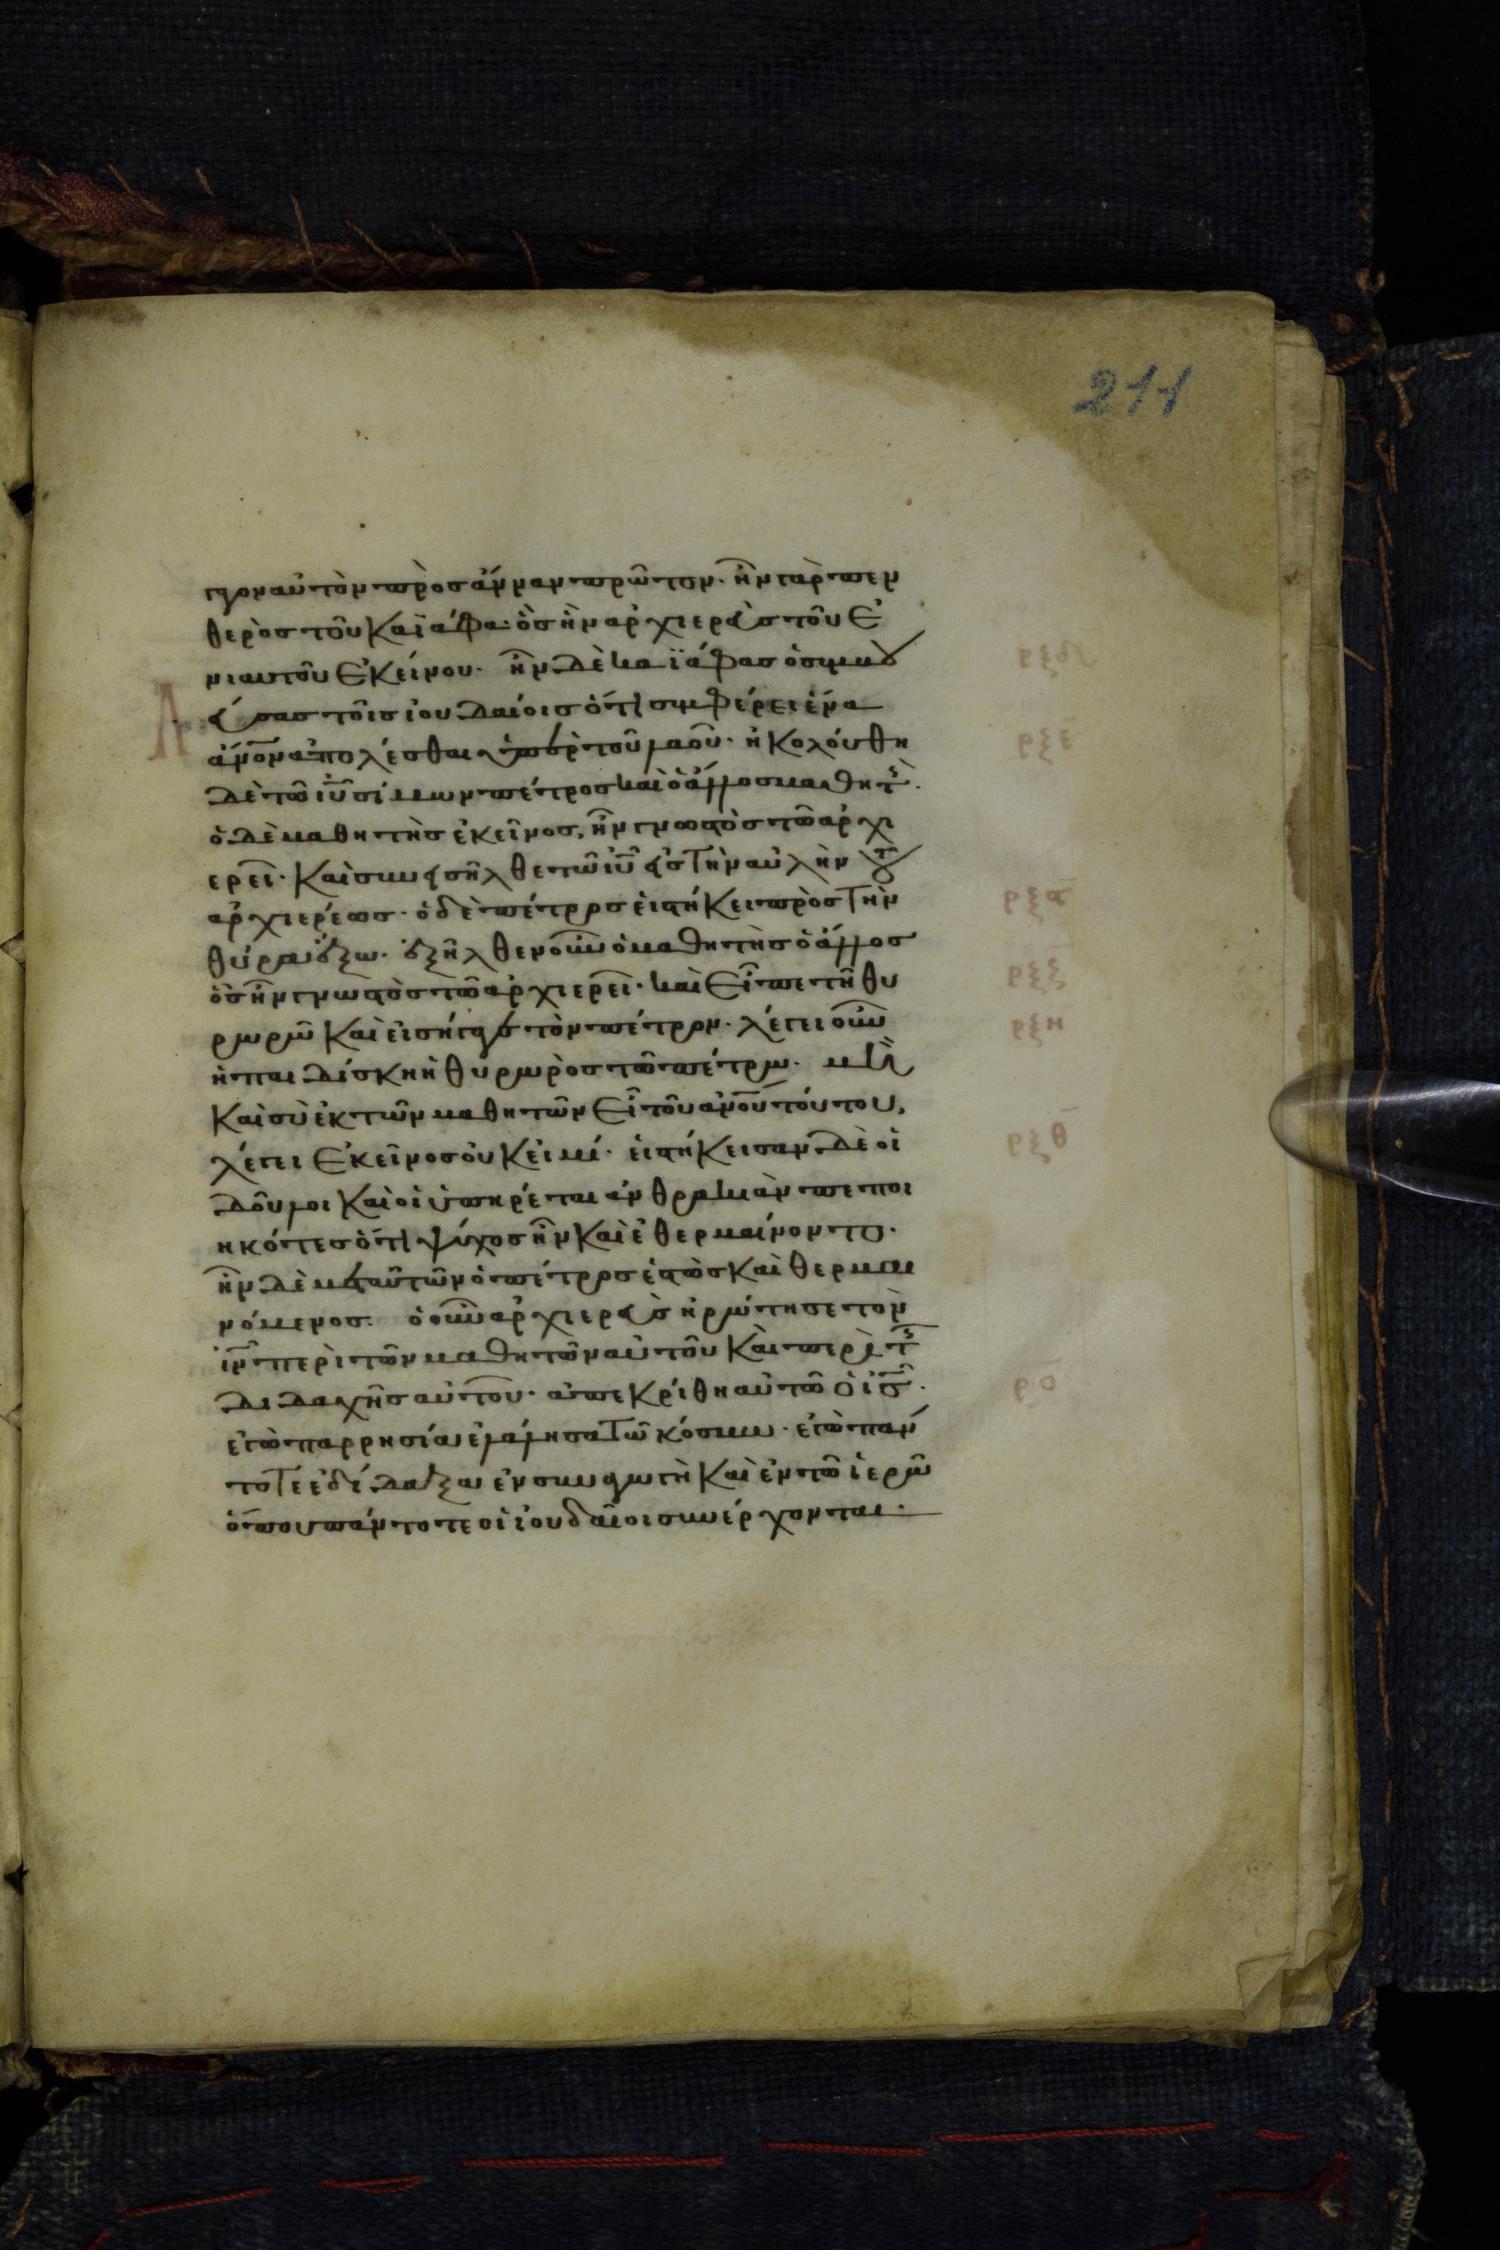 211
γον αὐτὸν πρὸς ἄνναν πρῶτον· ἦν γὰρ πεν
θερὸς τοῦ καϊάφα· ὃς ἦν ἀρχιερεὺς τοῦ ἐ
νιαυτοῦ ἐκείνου· ἦν δὲ καϊάφας ὁ συμβου
λεύσας τοῖς ἰουδαίοις ὅτι συμφέρει ἕνα
ἄνον ἀπολέσθαι ὑπὲρ τοῦ λαοῦ· ἠκολούθη
δὲ τῶ ιυ σίμων πέτρος καὶ ὁ ἄλλος μαθητὴς·
ὁ δὲ μαθητὴς ἐκεῖνος, ἦν γνωστὸς τῶ ἀρχι
ερεῖ· καὶ συνεισῆλθε τῶ ιυ εἰς τὴν αὐλὴν τοῦ
ἀρχιερέως· ὁ δὲ πέτρος εἱστήκει πρὸς τὴν
θύραν ἔξω· ἐξῆλθεν οὖν ὁ μαθητὴς ὁ ἄλλος
ὃς ἦν γνωστὸς τῶ ἀρχιερεῖ· καὶ εἶπε τῆ θυ
ρωρῶ καὶ εἰσήγαγε τὸν πέτρον· λέγει οὖν
ἡ παιδίσκη ἡ θυρωρὸς τῶ πέτρω· μὴ
καὶ σὺ ἐκ τῶν μαθητῶν εἶ τοῦ ἀνου τούτου,
λέγει ἐκεῖνος οὐκ εἰμί· εἱστήκεισαν δὲ οἱ
δοῦλοι καὶ οἱ ὑπηρέται ἀνθρακιὰν πεποι
ηκότες ὅτι ψύχος ἦν καὶ ἐθερμαίνοντο·
ἦν δὲ μετ αὐτῶν ὁ πέτρος ἑστὼς καὶ θερμαι
νόμενος· ὁ οὖν ἀρχιερεὺς ἠρώτησε τὸν
ιν περὶ τῶν μαθητῶν αὐτοῦ καὶ περὶ τῆς
διδαχῆς αὐτοῦ· ἀπεκρίθη αὐτῶ ὁ ις·
ἐγὼ παρρησία ἐλάλησα τῶ κόσμω· ἐγὼ πάν
τοτε ἐδίδαξα ἐν συναγωγὴ καὶ ἐν τῶ ἱερῶ
ὅπου πάντοτε οἱ ἰουδαῖοι συνέρχονται·